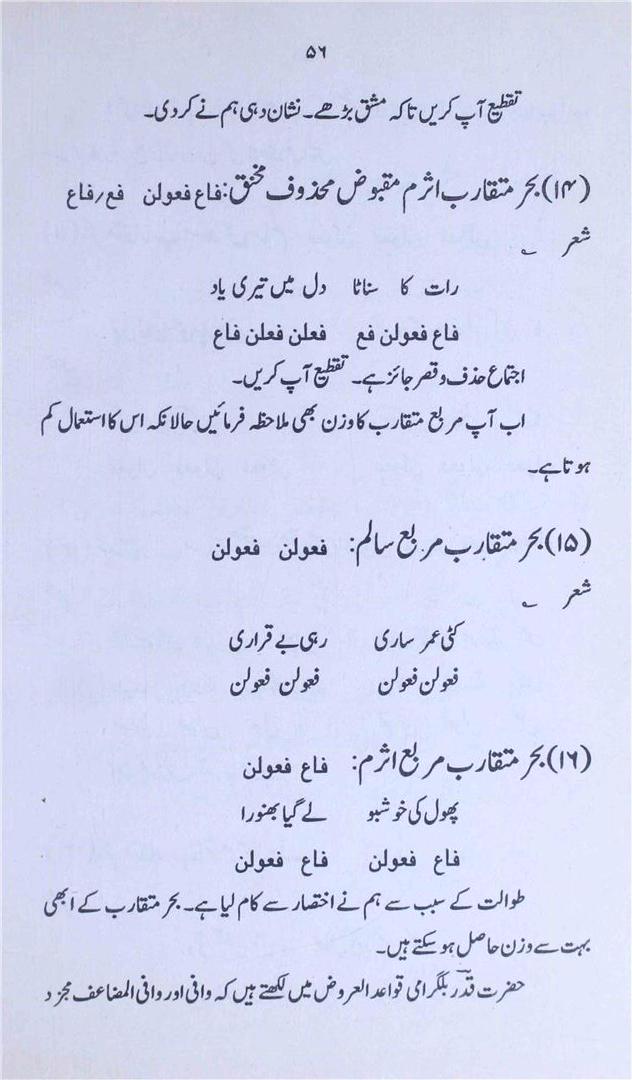 ۵۶
تقطیع آپ کریں تاکہ مشق بڑھے۔ نشان دہی ہم نے کر دی۔
(۱۴) بحر متقارب اثرم مقبوض محذوف مخنق: فاع فعولن فع؍فاع
شعر ؎
رات کا سناٹا دل میں تیری یاد
فاع فعولن فع فعلن فعلن فاع
اجتماع حذف و قصر جائز ہے۔ تقطیع آپ کریں۔
اب آپ مربع متقارب کا وزن بھی ملاحظہ فرمائیں حالانکہ اس کا استعمال کم
ہوتا ہے۔
(۱۵) بحر متقارب مربع سالم: فعولن فعولن
شعر ؎
کٹی عمر ساری رہی بے قراری
فعولن فعولن فعولن فعولن
(۱۶) بحر متقارب مربع اثرم: فاع فعولن
پھول کی خوشبو لے گیا بھنورا
فاع فعولن فاع فعولن
طوالت کے سبب سے ہم نے اختصار سے کام لیا ہے۔ بحر متقارب کے ابھی
بہت سے وزن حاصل ہو سکتے ہیں۔
حضرت قدؔر بلگرامی قواعد العروض میں لکھتے ہیں کہ وافی اور وافی المضاعف مجزد